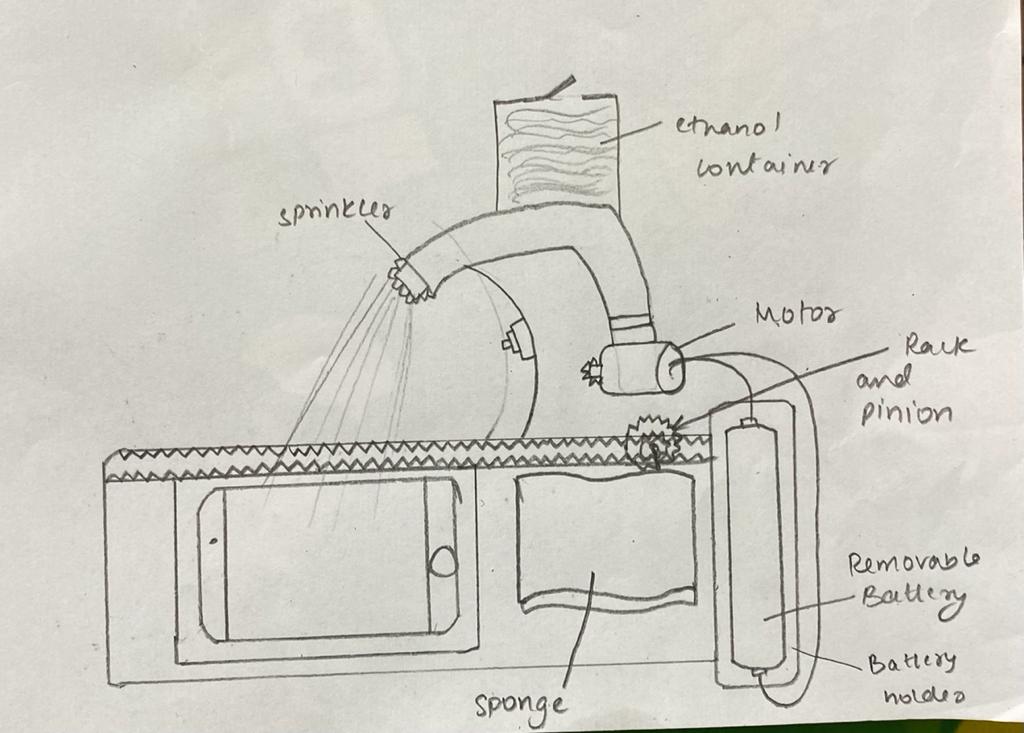 ethanol
container
sprinkler
Motor
Rack
and
pinion
Removable
Battery
Battery
holder
sponge